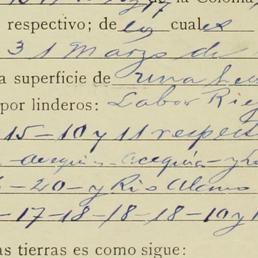 la Colonia
respectivo; de los cuales
31 Marzo de
a superficie de una he
por linderos: Labor Rie
15-10 y 11 respec
acequia - acequia - y
- 20 - y Rio Alamo
-17-18-18-18-10 y
as tierras es como sigue: